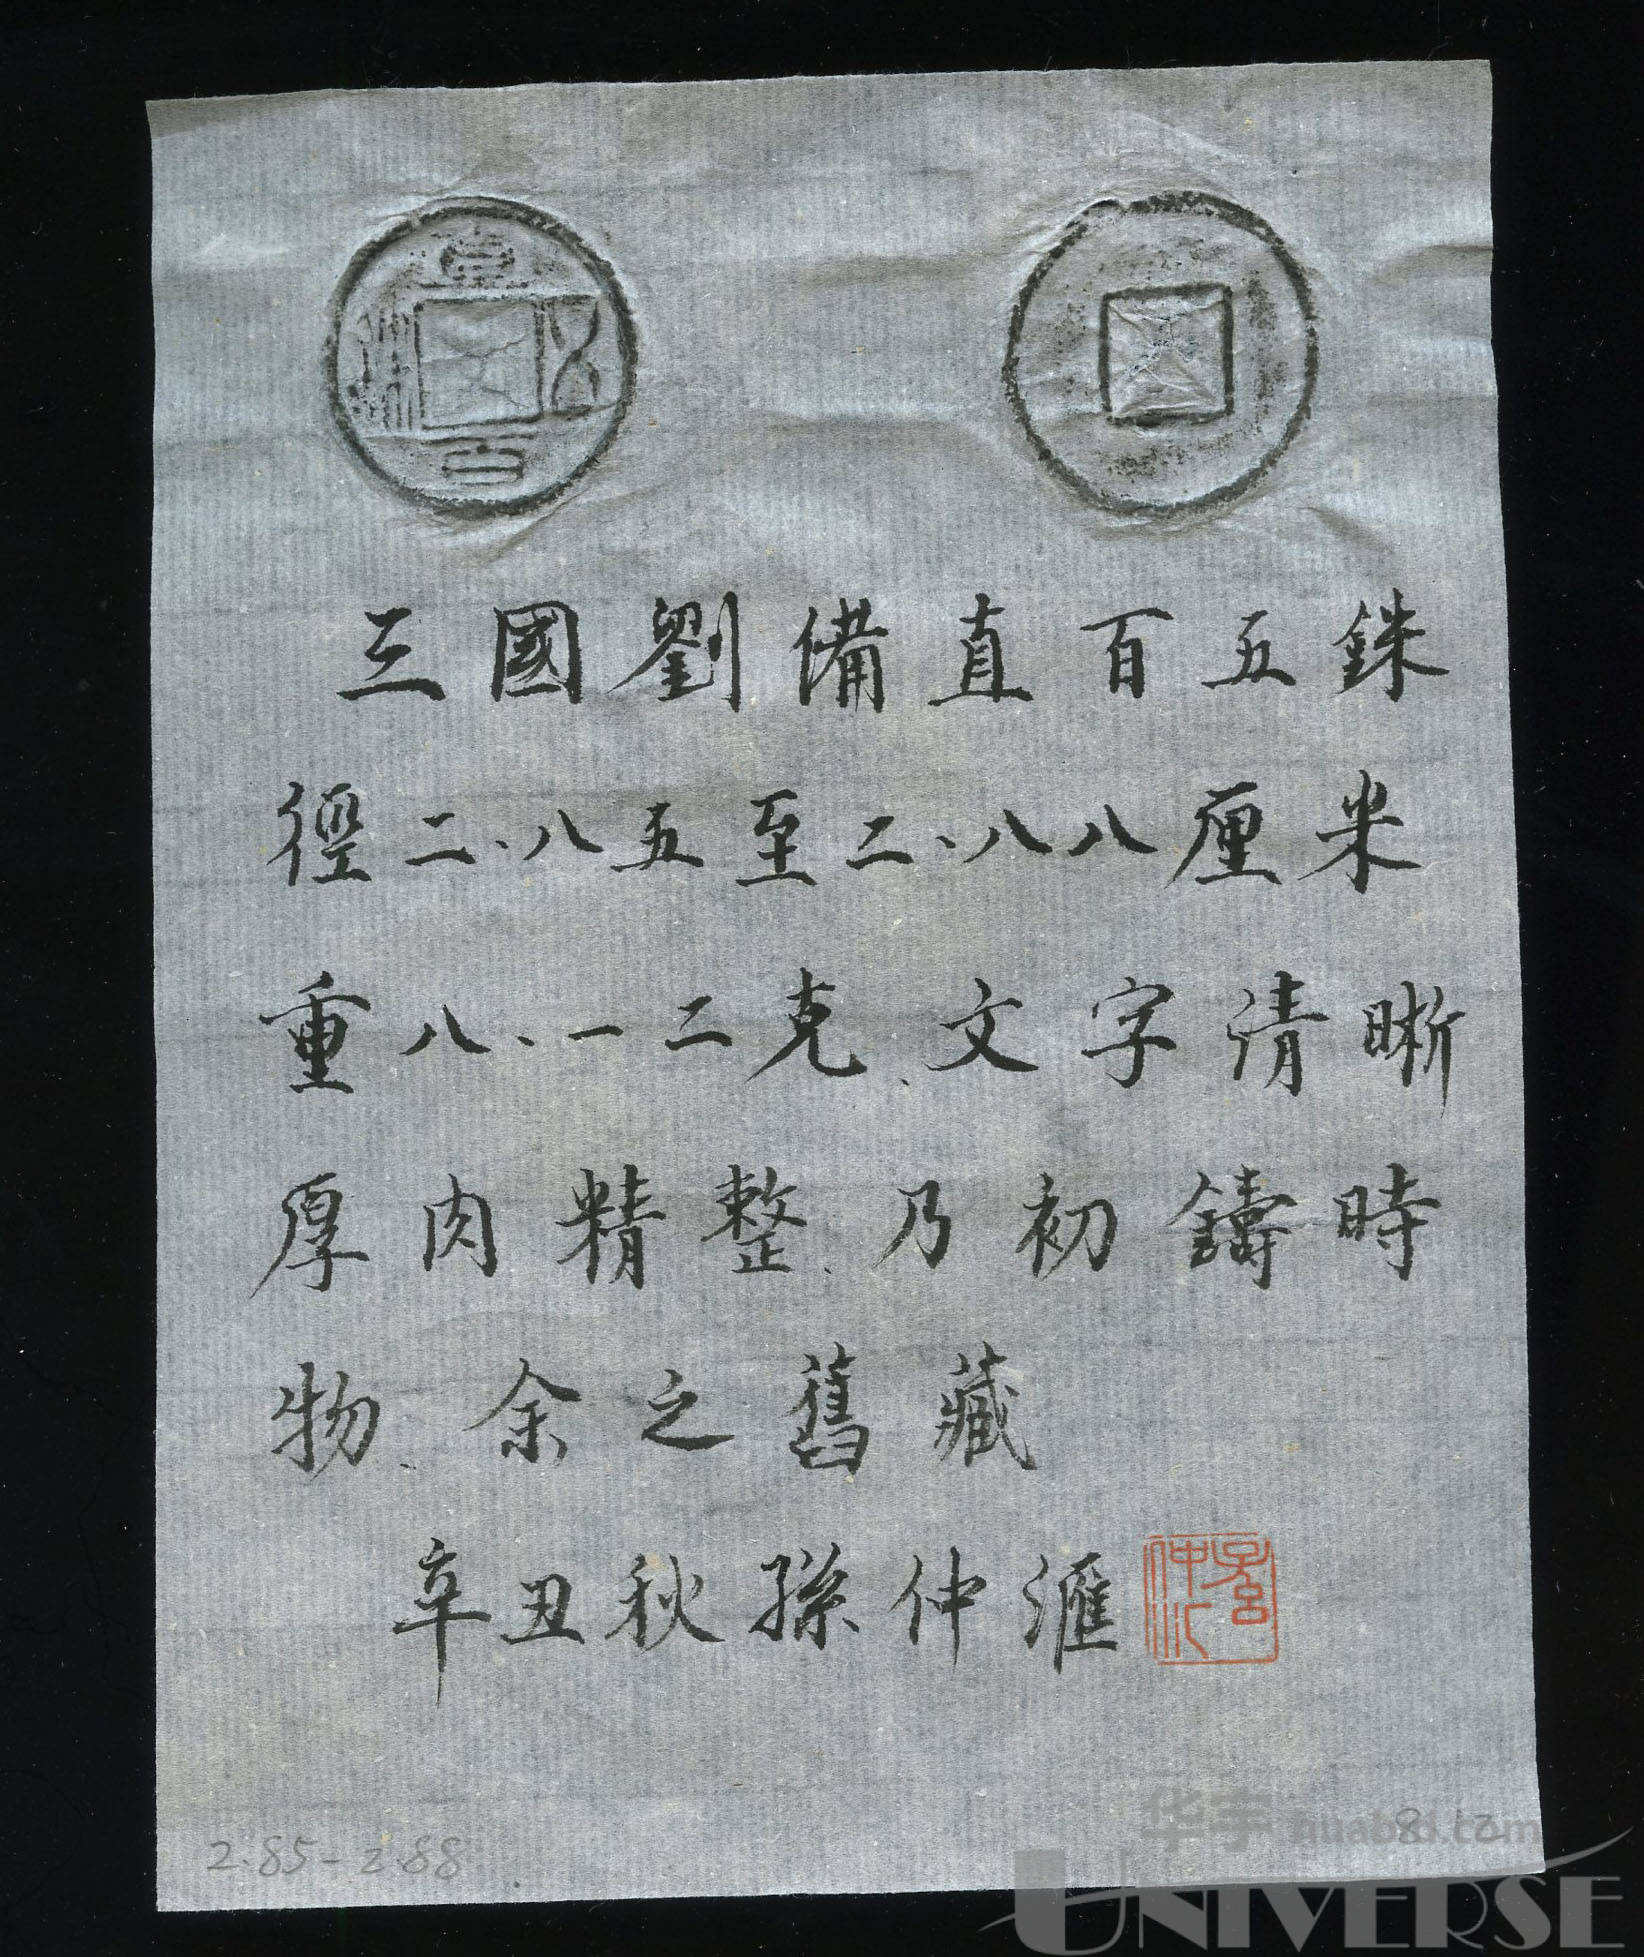 直
五銖
百
三國劉備直百五銖
徑二、八五至二、八八厘米
重八、一二克、文字清晰
厚肉精整、乃初鑄時
物、余之舊藏
辛丑秋孫仲滙
2.85-2.88
8.12
华宇 huabid.com
UNIVERSE